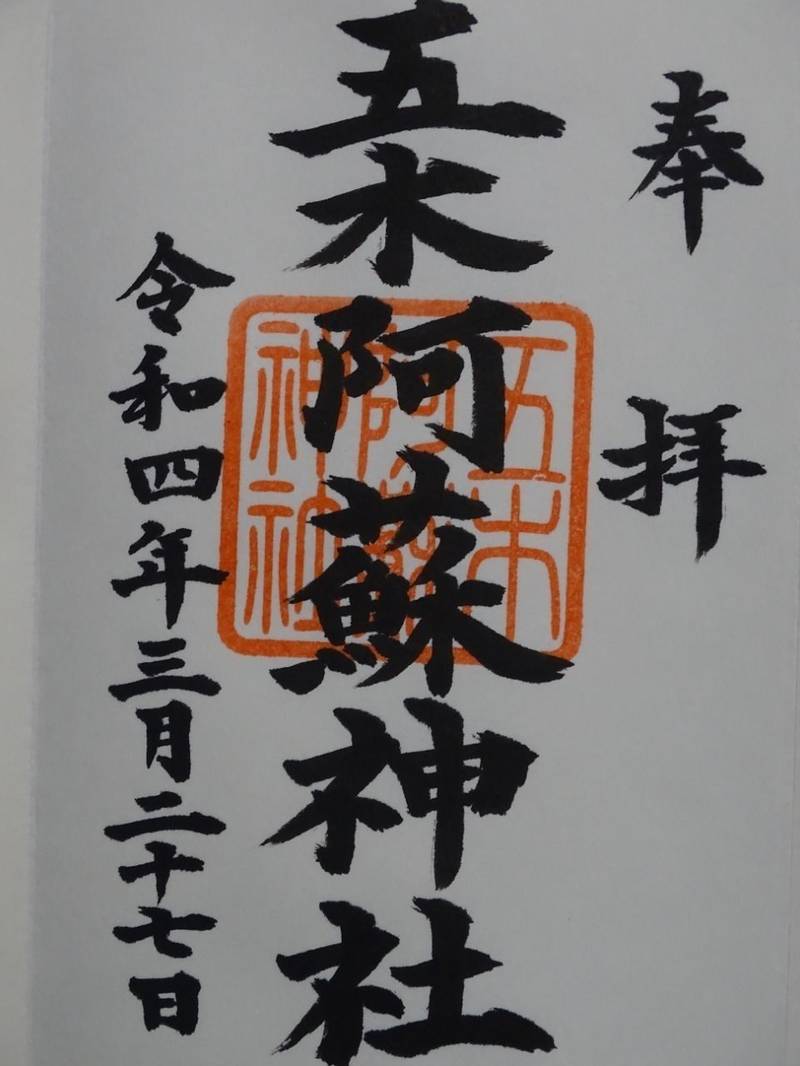 奉拝
五木阿蘇神社
令和四年三月二十七日
五木
阿蘇
神社